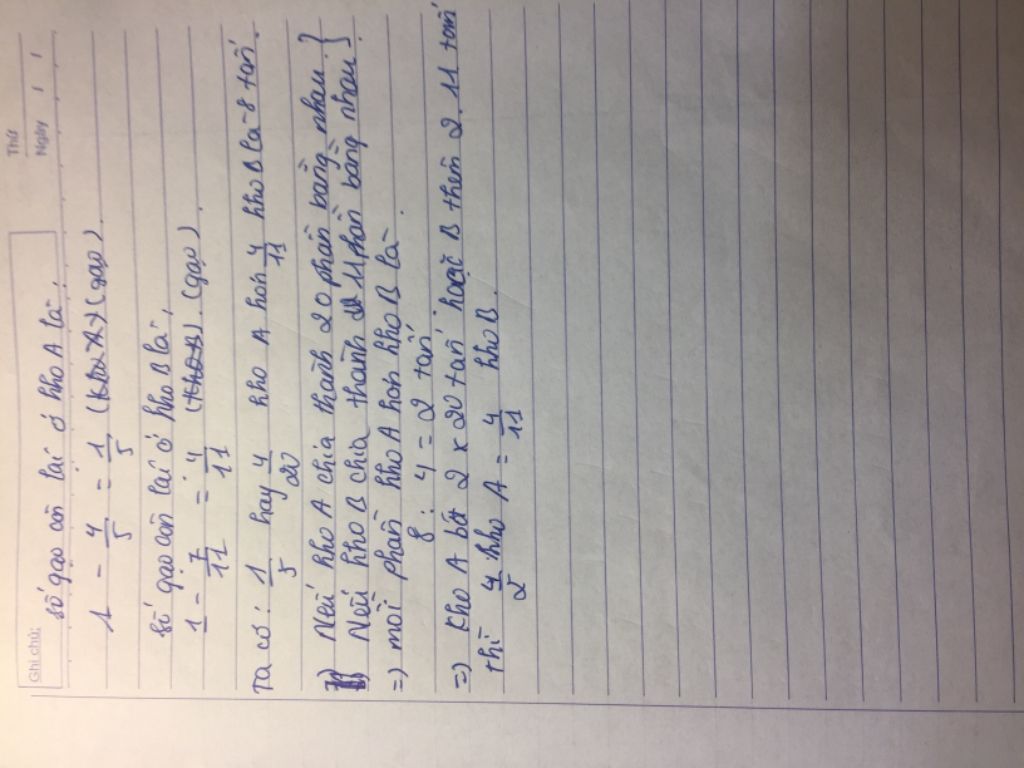 Thứ
Ngày / /
Ghi chú:
số gạo còn lại ở kho A là:
1 - 4/5 = 1/5 (gạo).
Số gạo còn lại ở kho B là:
1 - 7/11 = 4/11 (gạo).
Ta có: 1/5 hay 4/20 kho A hơn 4/11 kho B là 8 tấn.
Nếu kho A chia thành 20 phần bằng nhau }
Nếu kho B chia thành 11 phần bằng nhau }
=) mỗi phần kho A hơn kho B là
8 : 4 = 2 tấn
=) Kho A bớt 2 x 20 tấn hoặc B thêm 2. 11 tấn
thì 4/2 kho A = 4/11 kho B.